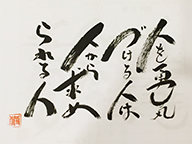 人を勇気
づける人は
人から求め
られる人